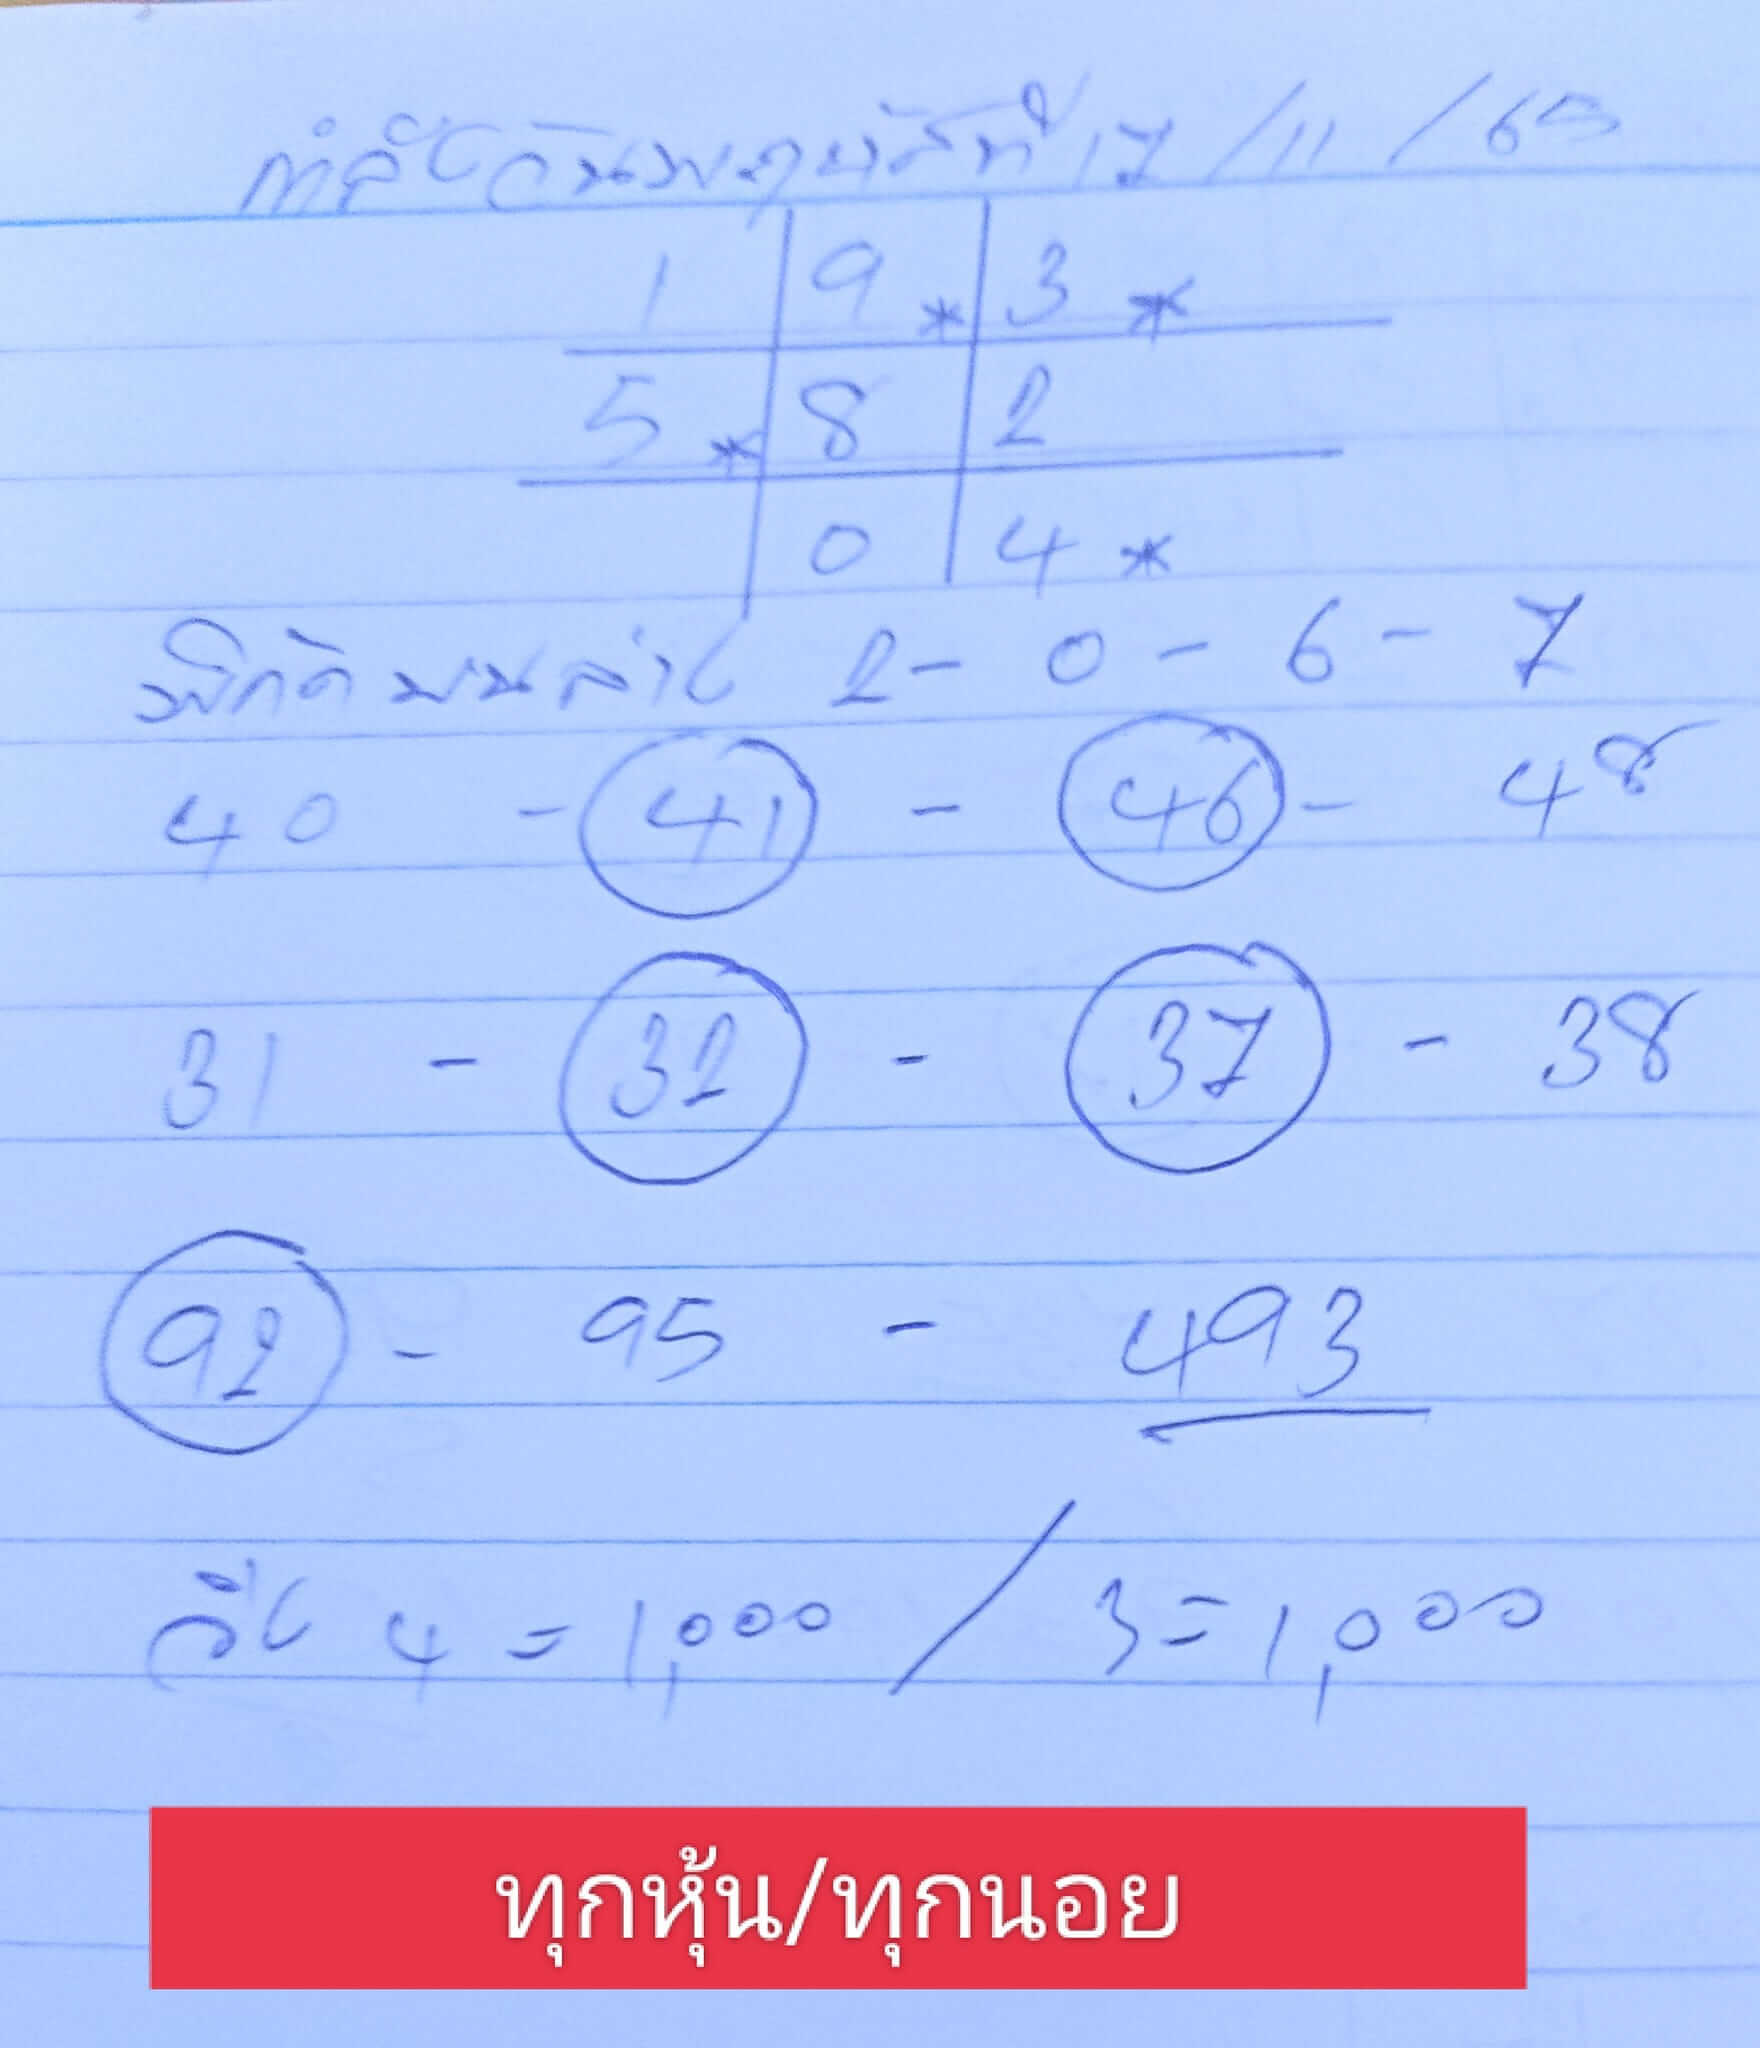 กำลังวันพฤหัสที่ 17/11/65
1 9* 3*
5* 8 2
0 4*
พิกัด บนล่าง 2 - 0 - 6 - 7
40 - 41 - 46 - 48
31 - 32 - 37 - 38
92 - 95 - 493
วิ่ง 4 = 1,000 / 3 = 1,000
ทุกหุ้น/ทุกนอย